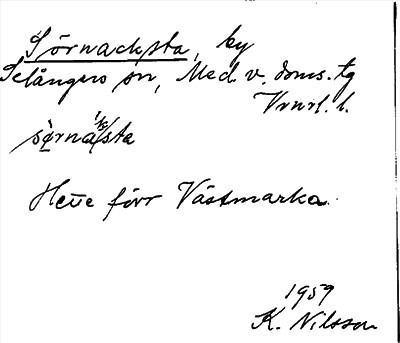 Sörnacksta, by
Selångers sn, Med. v. doms. tg
Vrnrl. l.
sörna/k/sta
Hette förr Västmarka.
1959
K. Nilsson